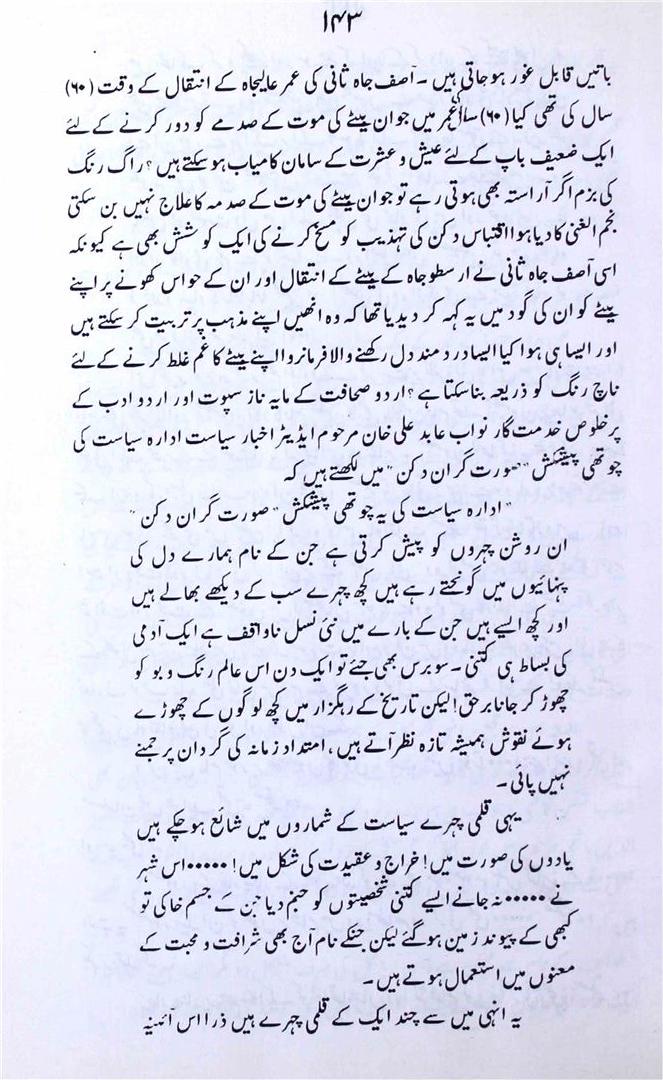 ۱۴۳
باتیں قابل غور ہو جاتی ہیں ۔ آصف جاہ ثانی کی عمر عالیجاہ کے انتقال کے وقت (۶۰)
سال کی تھی کیا (۶۰) سالہ عمر میں جوان بیٹے کی موت کے صدمے کو دور کرنے کے لئے
ایک ضعیف باپ کے لئے عیش و عشرت کے سامان کامیاب ہو سکتے ہیں ؟ راگ رنگ
کی بزم اگر آراستہ بھی ہوتی رہے تو جوان بیٹے کی موت کے صدمہ کا علاج نہیں بن سکتی
نجم الغنی کا دیا ہوا اقتباس دکن کی تہذیب کو مسخ کرنے کی ایک کوشش بھی ہے کیونکہ
اسی آصف جاہ ثانی نے ارسطو جاہ کے بیٹے کے انتقال اور ان کے حواس کھونے پر اپنے
بیٹے کو ان کی گود میں یہ کہہ کر دیدیا تھا کہ وہ انھیں اپنے مذہب پر تربیت کر سکتے ہیں
اور ایسا ہی ہوا کیا ایسا درد مند دل رکھنے والا فرمانروا اپنے بیٹے کا غم غلط کرنے کے لئے
ناچ رنگ کو ذریعہ بنا سکتا ہے ؟ اردو صحافت کے مایہ ناز سپوت اور اردو ادب کے
پر خلوص خدمت گار نواب عابد علی خان مرحوم ایڈیٹر اخبار سیاست ادارہ سیاست کی
چوتھی پیشکش "صورت گران دکن" میں لکھتے ہیں کہ
"ادارہ سیاست کی یہ چوتھی پیشکش "صورت گران دکن"
ان روشن چہروں کو پیش کرتی ہے جن کے نام ہمارے دل کی
پہنائیوں میں گونجتے رہے ہیں کچھ چہرے سب کے دیکھے بھالے ہیں
اور کچھ ایسے ہیں جن کے بارے میں نئی نسل ناواقف ہے ایک آدمی
کی بساط ہی کتنی ۔ سو برس بھی جئے تو ایک دن اس عالم رنگ و بو کو
چھوڑ کر جانا برحق ! لیکن تاریخ کے رہگزار میں کچھ لوگوں کے چھوڑے
ہوئے نقوش ہمیشہ تازہ نظر آتے ہیں ، امتداد زمانہ کی گرد ان پر جمنے
نہیں پاتی ۔
یہی قلمی چہرے سیاست کے شماروں میں شائع ہو چکے ہیں
یادوں کی صورت میں ! خراج و عقیدت کی شکل میں ! ۰۰۰۰۰ اس شہر
نے ۰۰۰۰۰ نہ جانے ایسے کتنی شخصیتوں کو جنم دیا جن کے جسم خاکی تو
کبھی کے پیوند زمین ہو گئے لیکن جنکے نام آج بھی شرافت و محبت کے
معنوں میں استعمال ہوتے ہیں ۔
یہ انہی میں سے چند ایک کے قلمی چہرے ہیں ذرا اس آئینہ